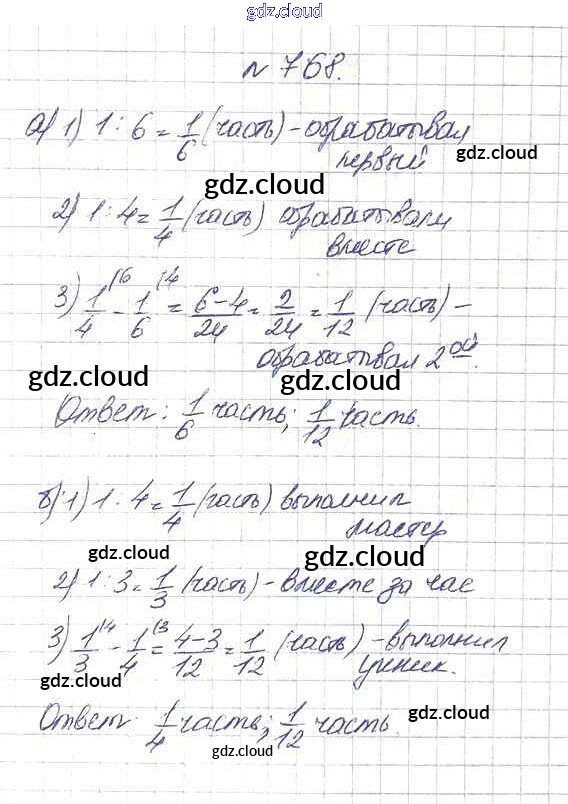 gdz.cloud
gdz.cloud
№ 768.
а) 1) 1 : 6 = 1/6 (часть) - обрабатывал
первый
gdz.cloud
gdz.cloud
2) 1 : 4 = 1/4 (часть) обрабатывали
вместе
3) 1/4 \6 - 1/6 \4 = 6-4/24 = 2/24 = 1/12 (часть) -
обрабатывал 2ой.
gdz.cloud
gdz.cloud
Ответ: 1/6 часть; 1/12 часть.
б) 1) 1 : 4 = 1/4 (часть) выполнил
мастер
gdz.cloud
gdz.cloud
2) 1 : 3 = 1/3 (часть) - вместе за час
3) 1/3 \4 - 1/4 \3 = 4-3/12 = 1/12 (часть) - выполнил
ученик.
gdz.cloud
gdz.cloud
Ответ: 1/4 часть; 1/12 часть.
gdz.cloud